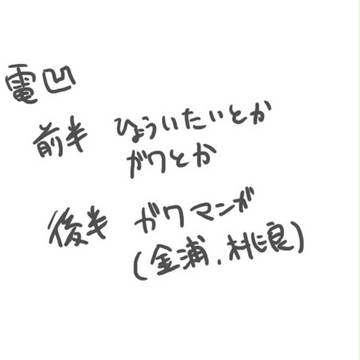 電凹
前半 ひょういたいとか
ガワとか
後半 ガワマンガ
(金浦、桃良)